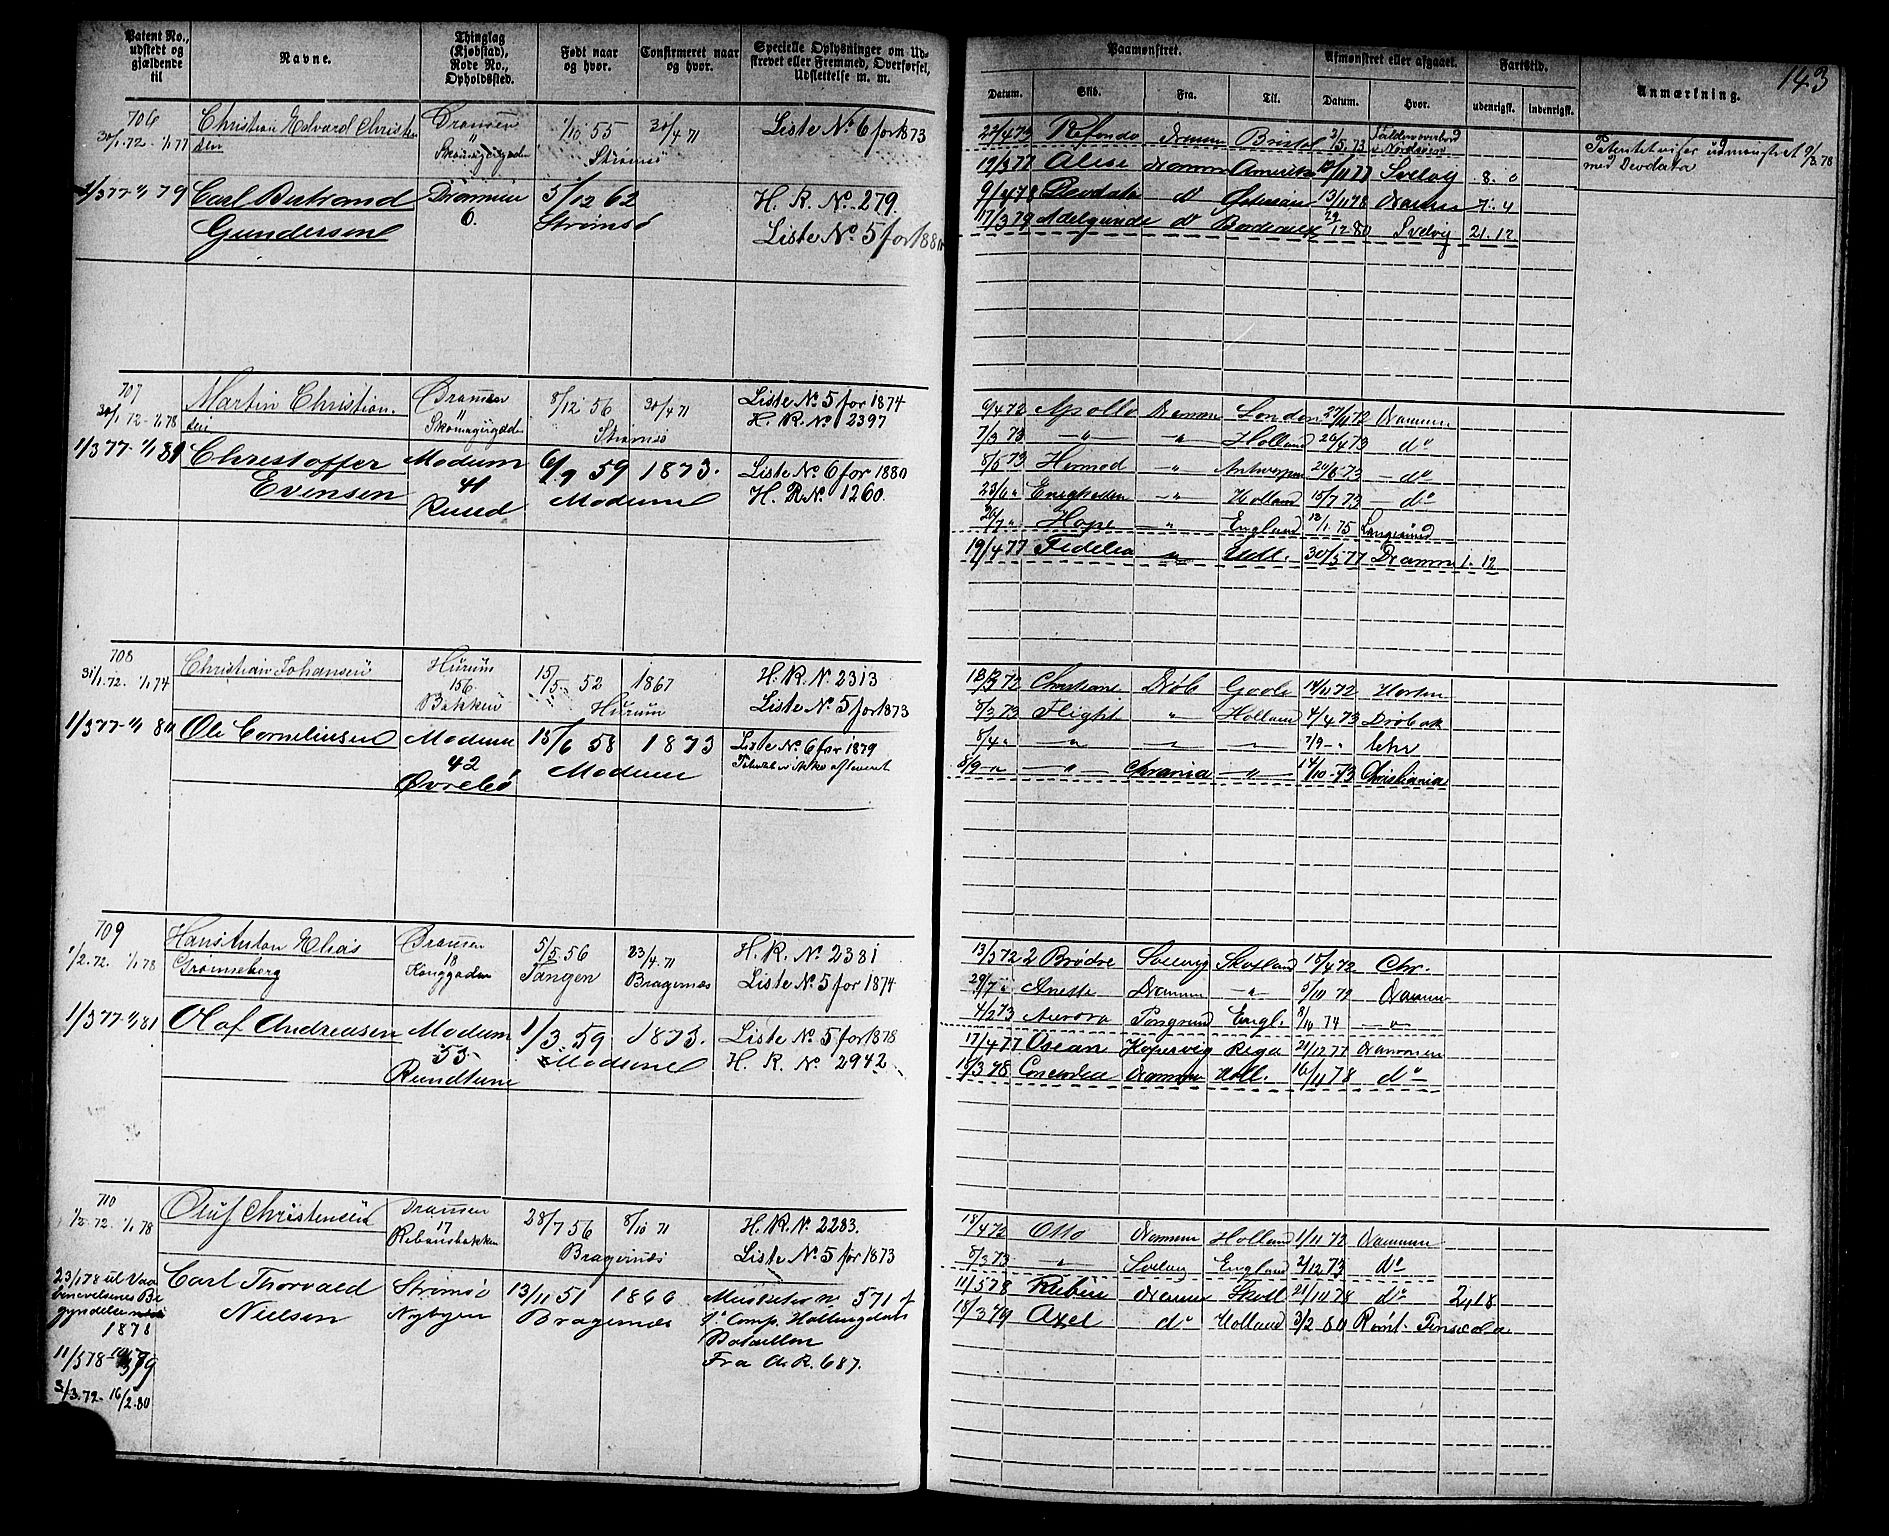 143
Patent No., udstedt og gjældende til
Navne.
Thinglag (Kjøbstad), Rode No., Opholdssted.
Født naar og hvor.
Confirmeret naar og hvor.
Specielle Oplysninger om Udskrevet eller Fremmed, Overførsel, Udslettelse m. m.
Paamønstret.
Afmønstret eller afgaaet.
Fartstid.
Anmærkning.
Datum. Skib. Fra. Til. Datum. Hvor. udenrigsk. indenrigsk.
706
30/1.72 - 1/1 77
Christian Edvard Christensen
Dramen
"
1/10 55
Strømsø
30/4 71
Liste No. 6 for 1873
1/3 77 - 1/1 79
Carl Bertrand
Gundersen
Drammen
6.
5/12 62
Strømsø
H. R. No. 279.
Liste No. 5 for 1880
Bristol
Patentet viser udmønstret 9/3 78
med Deodata
12/3 77 Alise Amerika Svelvig 8. 0
9/4 78 Deodata do 13/11 78 7. 4
17/3 79 Adelgunde do Bordeaux Svelvig 21. 12
707
30/1 72 - 1/1 78
Martin Christian
Dramen
"
8/12 56
Strømsø
30/4 71
Liste No. 5 for 1874
H. R. No. 2397
Christoffer
Evensen
Modum
41
Ruud
6/9 59
Modum
1873.
Liste No. 6 for 1880
H. R. N. 1260.
6/4 72 Apollo Dramen London 27/11 72 Drammen
7/3 73 — " — — " — Holland 26/4 73 do
8/5 73 Hermod — " Antwerpen 20/6 73 — do
23/6 " Enigheden — " Holland 15/7 73 — do
26/7 " Hope — " England 12/1 75 Langesund
19/4 77 Fidelia " Holl. 30/5 77 Dramm 1. 12
708
31/1.72. 1/1 74
Christian Johansen
Hurum
156
Bakken
15/5. 52
Hurum
1867
H. R. N. 2313
Liste No. 5 for 1873
1/3 77 - 1/1 80
Ole Corneliussen
Modum
42
Øvrebø
15/6 58
Modum
1873
Liste No. 6 for 1879
Christiane Drøb Goole 14/11 72 Horten
8/3 73 Flight " Holland 4/4 73 Drøbak
8/4 " — " — " — " 7/9 - "
8/9 - " — " — Chrania — " — 14/10 - 73 Christiania
709
1/2. 72. 1/1 78
Hans Anton Elias
Grønneberg
Dramen
18
Konggaden
5/5. 56
Tangen
23/4. 71
Bragernæs
H. R. No. 2381
Liste No. 5 for 1874
1/3 77 - 1/1 81
Olaf Andreasen
Modum
53
Rundtum
1/3 59
Modum
1873.
Liste No. 5 for 1878
H. R. No. 2942
13/3 72 2 Brødre Skotland 15/4 72 Chr.
29/7 " Anette Dramen — " 5/10 72 Drammen
4/2 73 Aurora Engl. 8/10 74 — "
17/4 77 Ocean Kopervig Riga 21/12 77 Drammen
16/3 78 Concordia Drammen Holl. 16/11 78 do
710
1/2. 72. 1/1 78
Oluf Christensen
Dramen
17
28/7 56
Bragernæs
8/10 71
H. R. N. 2283.
Liste N. 5 for 1873
23/1 78 til Vaabenøvelsenes Begyndelse
1878
11/5 78
3/3.79 - 16/2.80
Carl Thorvald
Nielsen
Strømsø
Nybyen
13/11 51
Bragernæs
1866
Musketer No 571 f
Comp. Hallingdals
Batallon
Fra A. R. 687.
18/4 72 Otto Drammen Holland 1/11 72 Drammen
8/3 73 " Svelvig England 2/12 73 do
11/5 78 Rubin Drammen Skotl 21/11 78 do 2,18
18/3 79 Axel do Holland 3/2 80 Rømt. Pensecola